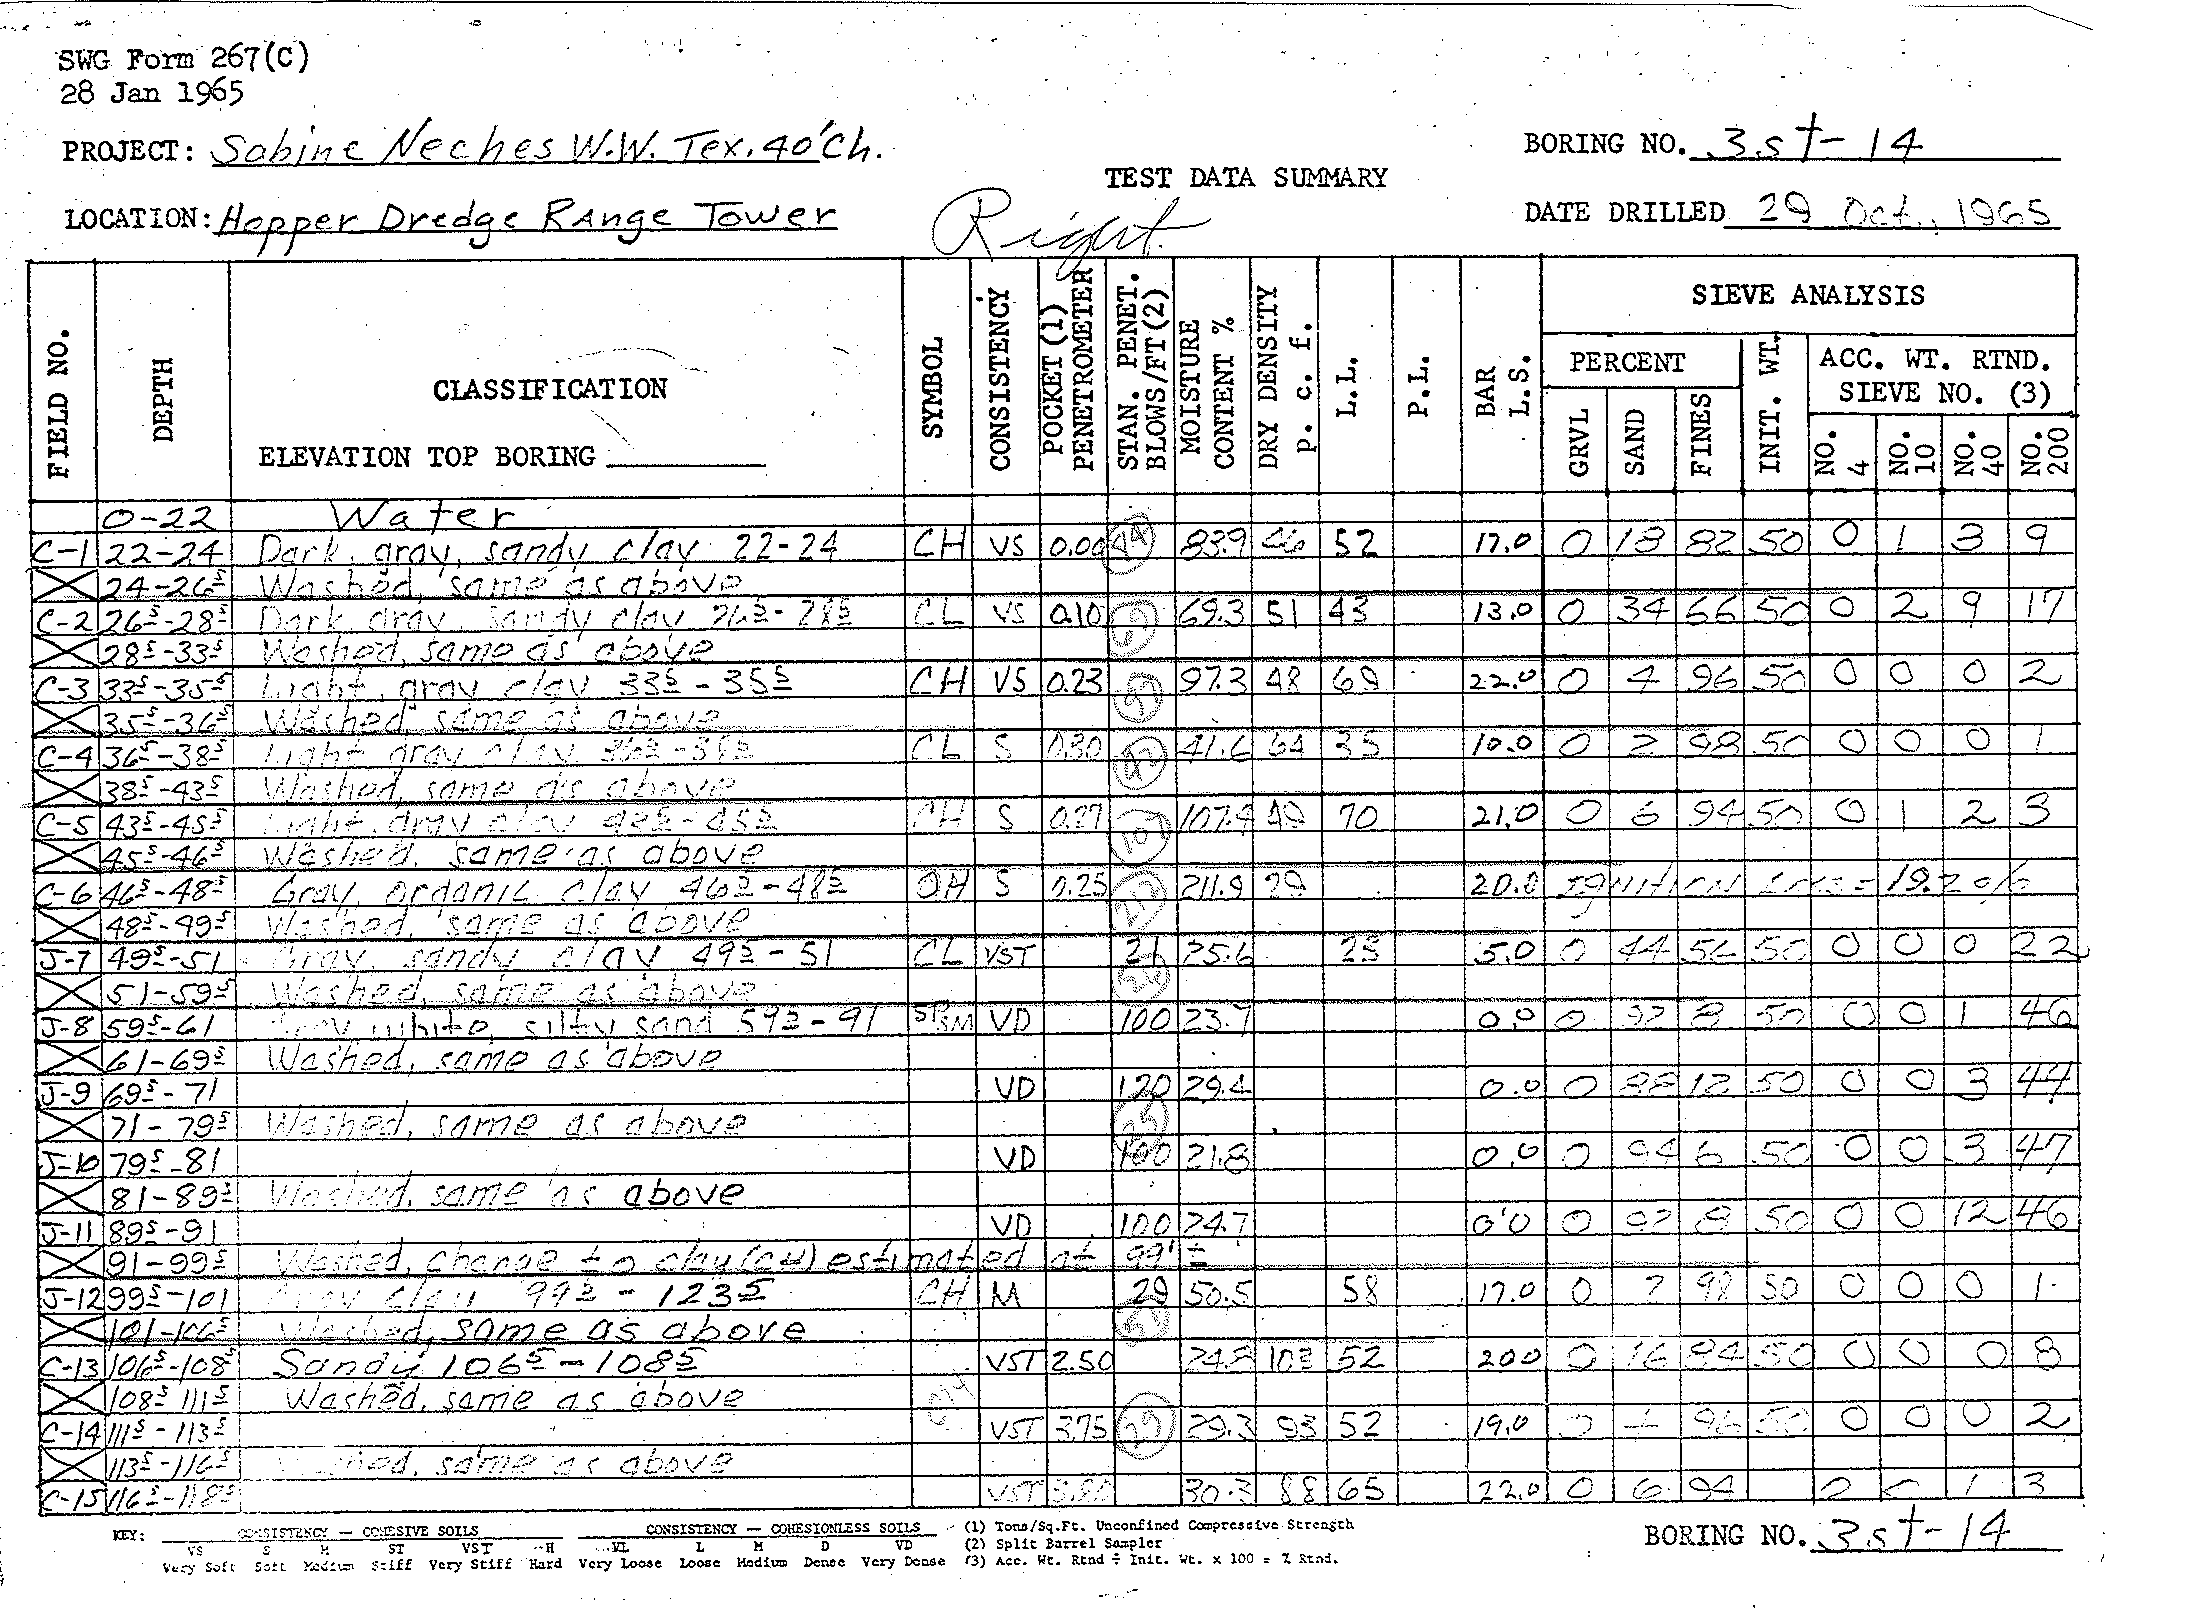 SWG Form 267(C)
28 Jan 1965
PROJECT: Sabine Neches W.W. Tex. 40' Ch.
BORING NO. 3st-14
TEST DATA SUMMARY
LOCATION: Hopper Dredge Range Tower
Right
DATE DRILLED 29 Oct., 1965
FIELD NO. DEPTH CLASSIFICATION SYMBOL CONSISTENCY POCKET (1) PENETROMETER STAN. PENET. BLOWS/FT (2) MOISTURE CONTENT % DRY DENSITY p. c. f. L.L. P.L. BAR L.S. SIEVE ANALYSIS
PERCENT INIT. WT. ACC. WT. RTND. SIEVE NO. (3)
ELEVATION TOP BORING
GRVL SAND FINES NO. 4 NO. 10 NO. 40 NO. 200
0-22 Water
C-1 22-24 Dark, gray, sandy clay 22-24 CH VS 0.00 83.9 46 52 17.0 0 18 82 50 0 1 3 9
24-26⁵ Washed, same as above
C-2 26⁵-28⁵ Dark, gray, sandy clay 26⁵-28⁵ CL VS 0.10 69.3 51 43 13.0 0 34 66 50 0 2 9 17
28⁵-33⁵ Washed, same as above
C-3 33⁵-35⁵ Light, gray clay 33⁵-35⁵ CH VS 0.23 97.3 48 69 22.0 0 4 96 50 0 0 0 2
35⁵-36⁵ Washed, same as above
C-4 36⁵-38⁵ Light gray clay 36⁵-38⁵ CL S 0.30 41.6 64 35 10.0 0 2 98 50 0 0 0 1
38⁵-43⁵ Washed, same as above
C-5 43⁵-45⁵ Light, gray clay 43⁵-45⁵ CH S 107.9 70 21.0 0 6 94 50 0 1 2 3
45⁵-46⁵ Washed, same as above
C-6 46⁵-48⁵ Gray, organic clay 46⁵-48⁵ OH S 0.25 211.9 29 20.0 Ignition Loss = 19.2 %
48⁵-49⁵ Washed, same as above
J-7 49⁵-51 Gray, sandy clay 49⁵-51 CL VST 21 25.6 25 5.0 0 44 56 50 0 0 0 22
51-59⁵ Washed, same as above
J-8 59⁵-61 Gray white, silty sand 59⁵-91 SP SM VD 100 23.7 0.0 0 92 8 50 0 0 1 46
61-69⁵ Washed, same as above
J-9 69⁵-71 VD 120 29.4 0.0 0 88 12 50 0 0 3 44
71-79⁵ Washed, same as above
J-10 79⁵-81 VD 100 21.8 0.0 0 94 6 50 0 0 3 47
81-89⁵ Washed, same as above
J-11 89⁵-91 VD 100 24.7 0.0 0 92 8 50 0 0 12 46
91-99⁵ Washed, change to clay (CH) estimated at 99'±
J-12 99⁵-101 Gray clay 99⁵-123⁵ CH M 29 50.5 58 17.0 0 2 98 50 0 0 0 1
101-106⁵ Washed, same as above
C-13 106⁵-108⁵ Sandy 106⁵-108⁵ VST 2.50 24.8 103 52 20.0 0 16 84 50 0 0 0 8
108⁵-111⁵ Washed, same as above
C-14 111⁵-113⁵ VST 3.75 29.3 93 52 19.0 0 4 96 50 0 0 0 2
113⁵-116⁵ Washed, same as above
C-15 116⁵-118⁵ VST 30.3 88 65 22.0 0 6 94 1 3
KEY: CONSISTENCY — COHESIVE SOILS CONSISTENCY — COHESIONLESS SOILS (1) Tons/Sq.Ft. Unconfined Compressive Strength
VS S M ST VST H VL L M D VD (2) Split Barrel Sampler
Very Soft Soft Medium Stiff Very Stiff Hard Very Loose Loose Medium Dense Very Dense (3) Acc. Wt. Rtnd ÷ Init. Wt. x 100 = % Rtnd.
BORING NO. 3st-14